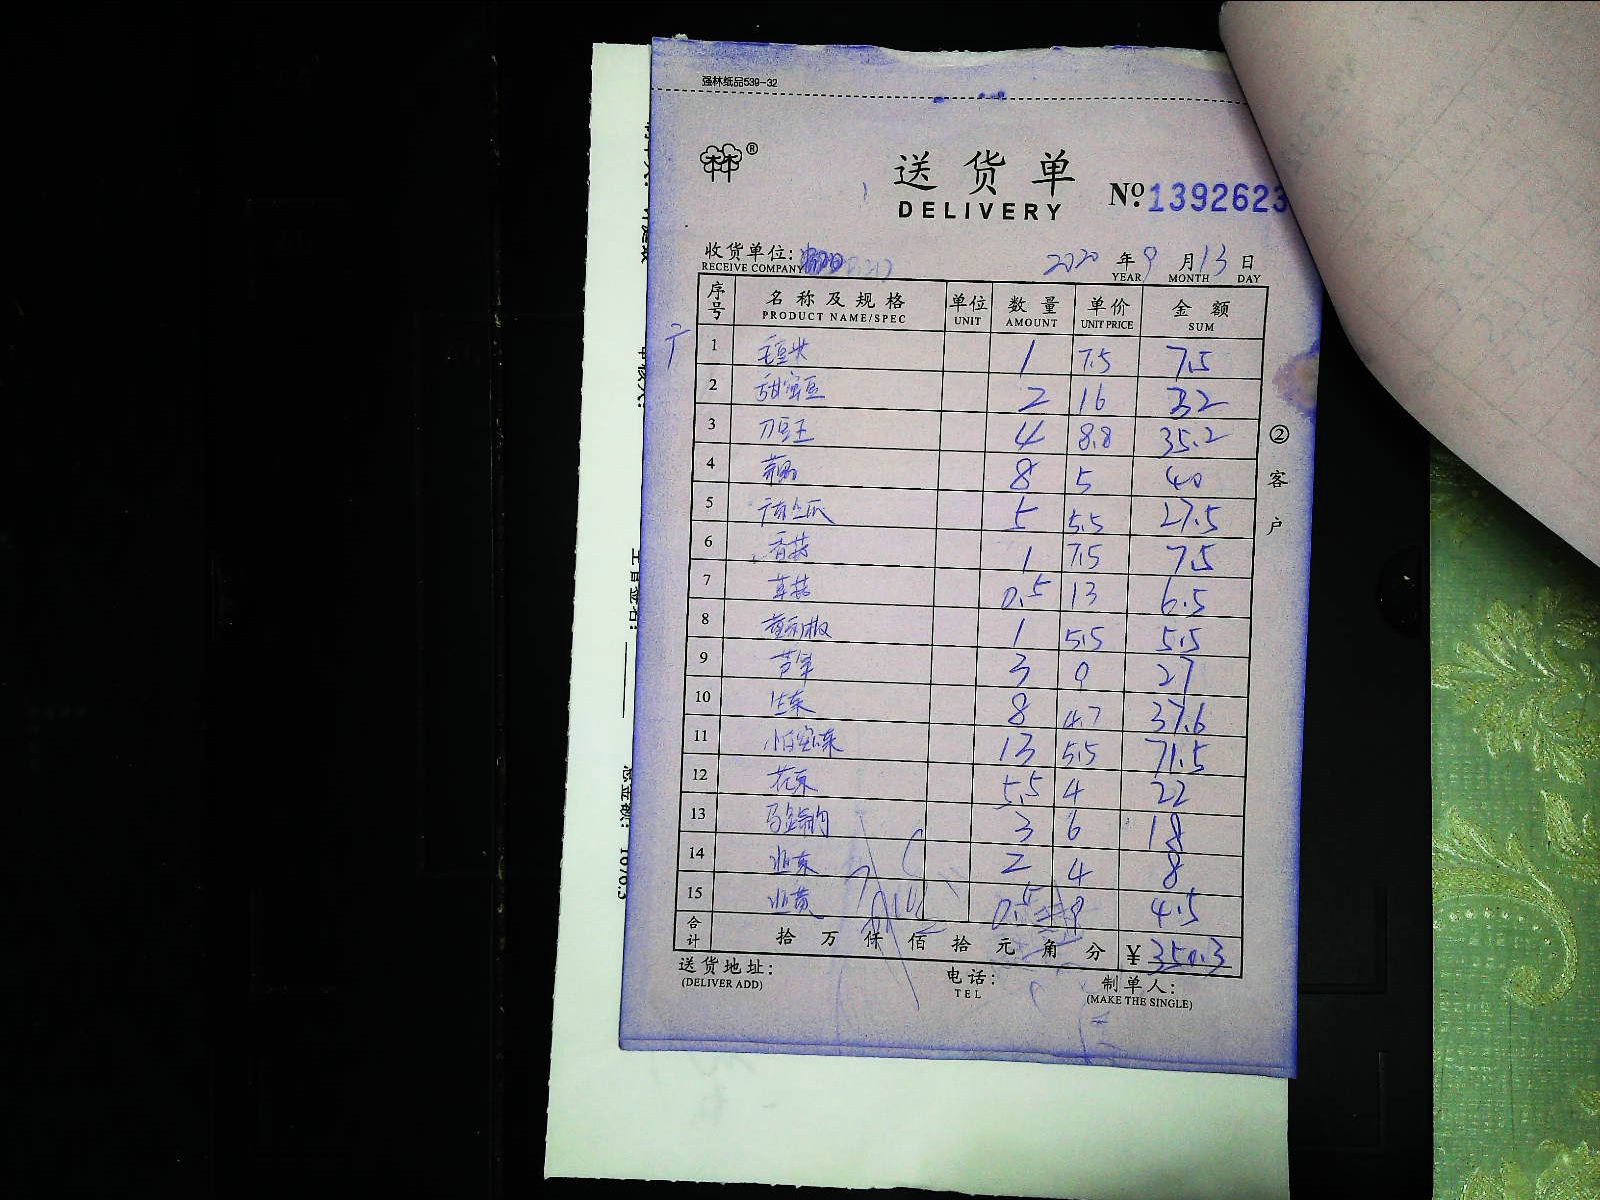 强林纸品539-32
®
送货单
DELIVERY
№ 1392623
收货单位:
RECEIVE COMPANY
2020 年 9 月 13 日
YEAR MONTH DAY
序号 名称及规格 单位 数量 单价 金额
PRODUCT NAME/SPEC UNIT AMOUNT UNIT PRICE SUM
1 毛豆米 1 7.5 7.5
2 甜蜜豆 2 16 32
3 刀豆王 4 8.8 35.2
4 8 5 40
5 5 5.5 27.5
6 香菇 1 7.5 7.5
7 草菇 0.5 13 6.5
8 1 5.5 5.5
9 芦笋 3 9 27
10 生菜 8 4.7 37.6
11 13 5.5 71.5
12 花菜 5.5 4 22
13 3 6 18
14 韭菜 2 4 8
15 韭黄 0.5 9 4.5
合计 拾 万 仟 佰 拾 元 角 分 ¥ 350.3
送货地址: 电话: 制单人:
(DELIVER ADD) TEL (MAKE THE SINGLE)
② 客户